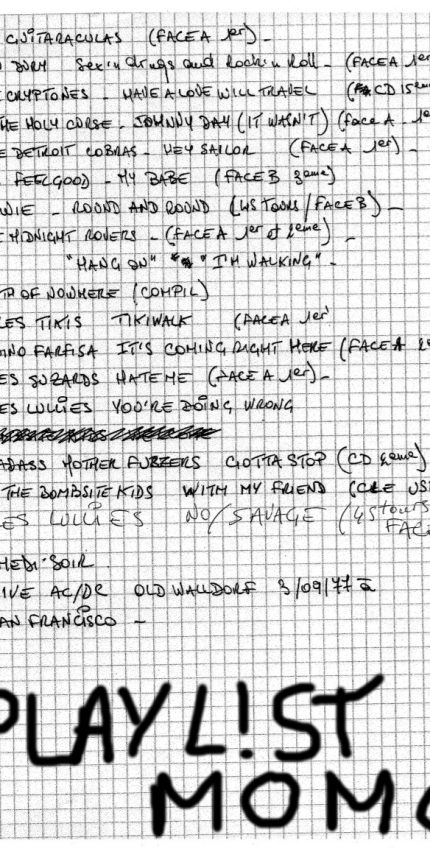 GUITARACULAS (FACE A 1er) -
DURY Sex'n drugs and Rock'n Roll - (FACE A 1er
CRYPTONES - HAVE A LOVE WILL TRAVEL (CD 15eme
HE HOLY CURSE - JOHNNY DAY (IT WASN'T) (face A 1er
E DETROIT COBRAS - HEY SAILOR (FACE A 1er) -
FEELGOOD - MY BABE (FACE B 3eme)
WIE - ROUND AND ROUND (45 TOURS / FACE B) -
MIDNIGHT ROVERS - (FACE A 1er et 2eme) -
"HANG ON" "I'M WALKING" -
TH OF NOWHERE (COMPIL)
LES TIKIS TIKIWALK (FACE A 1er
INO FARFISA IT'S COMING RIGHT HERE (FACE A
ES SUZARDS HATE ME (FACE A 1er) -
ES LULLIES YOU'RE DOING WRONG
ADASS MOTHER FUZZERS GOTTA STOP (CD 2eme)
THE BOMBSITE KIDS WITH MY FRIEND (CLE US
ES LULLIES NO/SAVAGE (45 tours
FACE
MEDI SOIR
IVE AC/DC OLD WALDORF 3/09/77 à
AN FRANCISCO -
PLAYLIST
MOMO